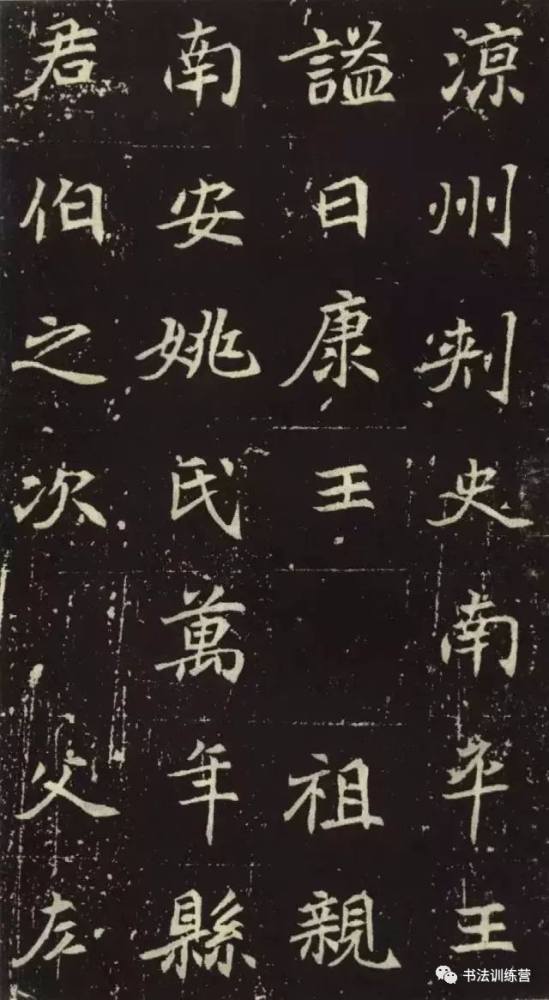 涼州刾史南平王
謚曰康王 祖親
南安姚氏萬年縣
君伯之次 父左
书法训练营